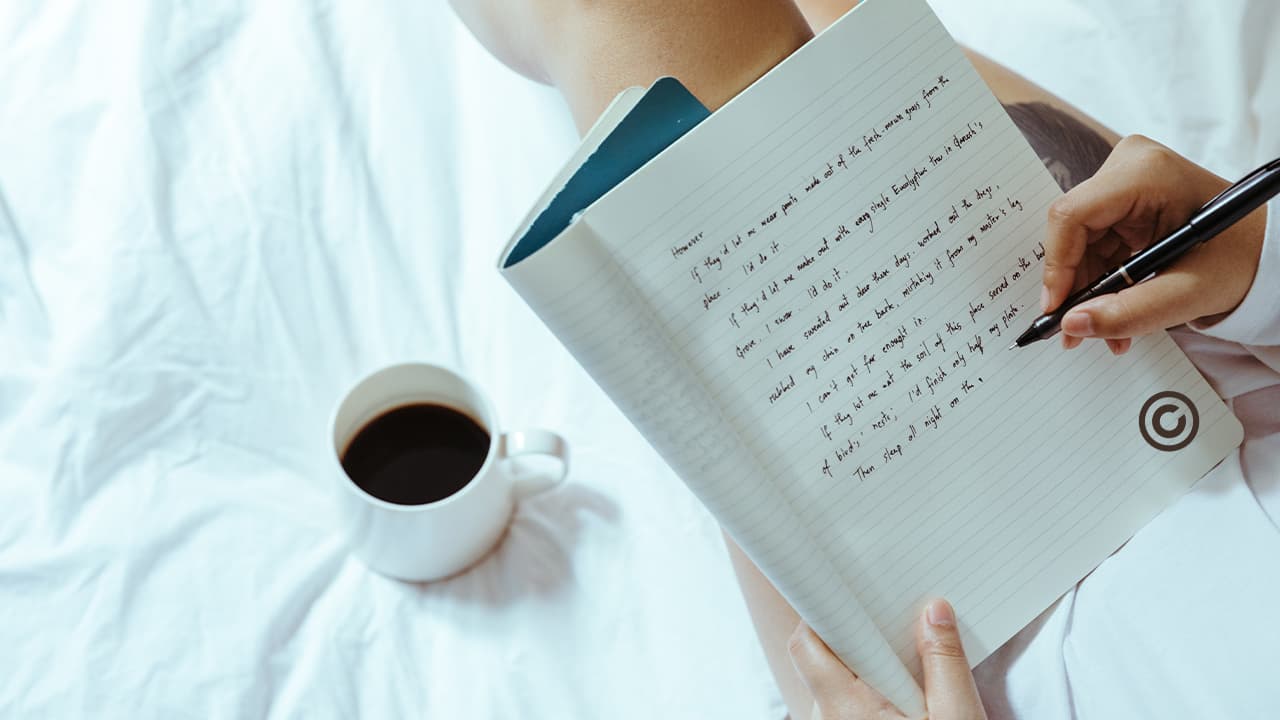 However
If they'd let me wear pants made out of the fresh-morude grass from the
place. I'd do it.
If they'd let me make out with every single Eucalyptus tree in
Grove. I swear. I'd do it.
I have sweated out dear these days. worked out the dregs,
rubbed my chin on tree bark, mistaking it from my master's leg
I can't get far enought in.
If they let me eat the soil of this place served on the bed
of birds' nests; I'd finish only half my plate.
Then sleep all night on the
©